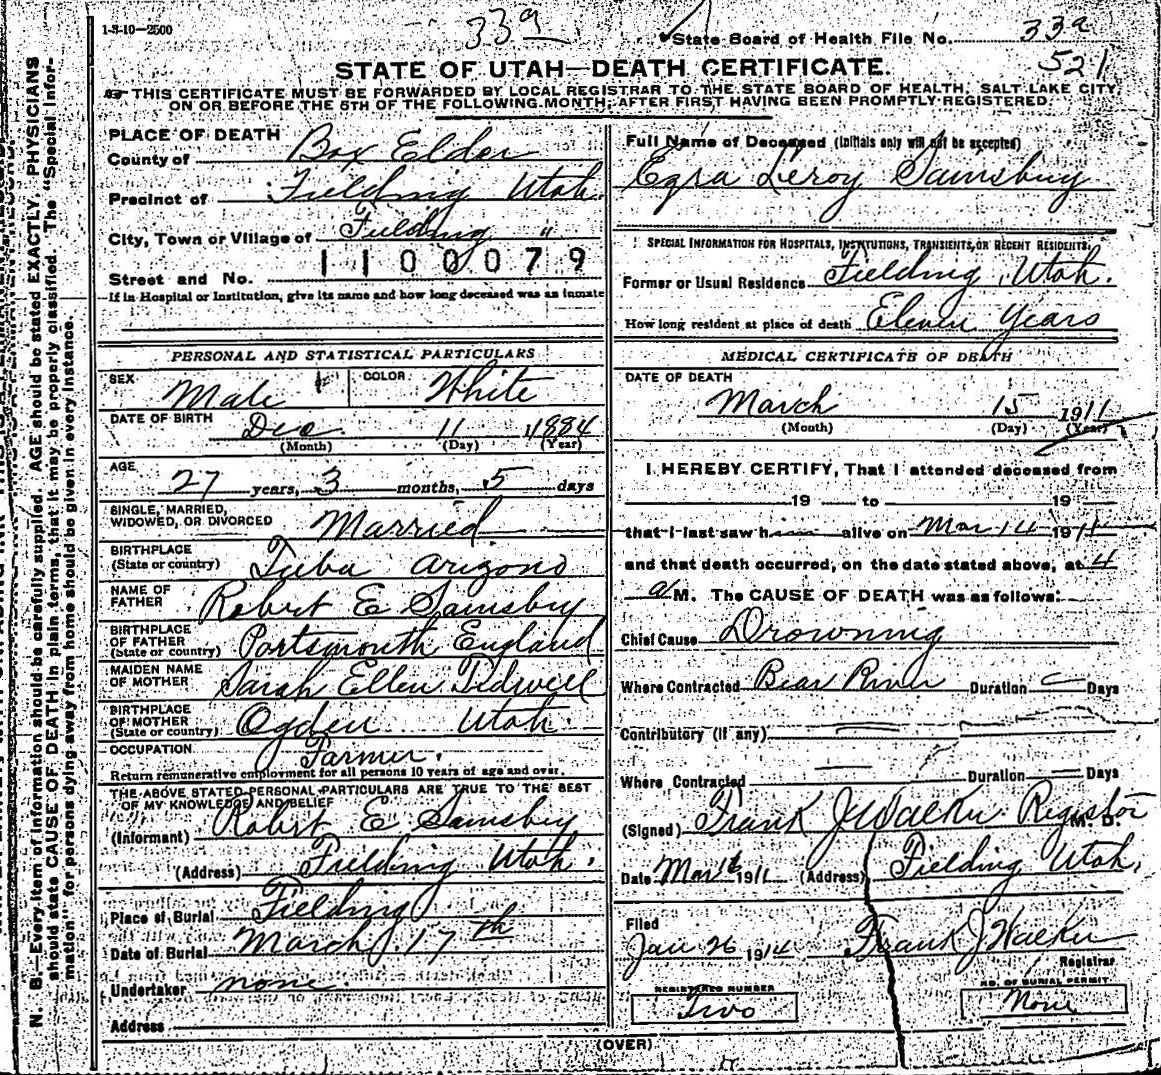 1-3-10—2500
33a
State Board of Health File No. 33a
521
STATE OF UTAH—DEATH CERTIFICATE.
THIS CERTIFICATE MUST BE FORWARDED BY LOCAL REGISTRAR TO THE STATE BOARD OF HEALTH, SALT LAKE CITY,
ON OR BEFORE THE 5TH OF THE FOLLOWING MONTH, AFTER FIRST HAVING BEEN PROMPTLY REGISTERED.
N. B.—Every item of information should be carefully supplied. AGE should be stated EXACTLY. PHYSICIANS
should state CAUSE OF DEATH in plain terms, that it may be properly classified. The "Special Infor-
mation" for persons dying away from home should be given in every instance.
PLACE OF DEATH
County of Box Elder
Precinct of Fielding Utah
City, Town or Village of Fielding "
Street and No. 1100079
If in Hospital or Institution, give its name and how long deceased was as inmate
PERSONAL AND STATISTICAL PARTICULARS
SEX Male COLOR White
DATE OF BIRTH Dec. 11 1884
(Month) (Day) (Year)
AGE 27 years, 3 months, 5 days
SINGLE, MARRIED,
WIDOWED, OR DIVORCED Married
BIRTHPLACE
(State or country) Tuba Arizona
NAME OF
FATHER Robert E Sainsbury
BIRTHPLACE
OF FATHER
(State or country) Portsmouth England
MAIDEN NAME
OF MOTHER Sarah Ellen Tidwell
BIRTHPLACE
OF MOTHER
(State or country) Ogden Utah.
OCCUPATION Farmer.
Return remunerative employment for all persons 10 years of age and over.
THE ABOVE STATED PERSONAL PARTICULARS ARE TRUE TO THE BEST
OF MY KNOWLEDGE AND BELIEF
(Informant) Robert E Sainsbury
(Address) Fielding Utah.
Place of Burial Fielding
Date of Burial March 17th
Undertaker none.
Address
Full Name of Deceased (Initials only will not be accepted)
Ezra Leroy Sainsbury
SPECIAL INFORMATION FOR HOSPITALS, INSTITUTIONS, TRANSIENTS, OR RECENT RESIDENTS.
Former or Usual Residence Fielding, Utah.
How long resident at place of death Eleven Years
MEDICAL CERTIFICATE OF DEATH
DATE OF DEATH
March 15 1911
(Month) (Day) (Year)
I HEREBY CERTIFY, That I attended deceased from
19 to 19
that I last saw him alive on Mar 14 1911
and that death occurred, on the date stated above, at 4
a M. The CAUSE OF DEATH was as follows:
Chief Cause Drowning
Where Contracted Bear River Duration Days
Contributory (if any)
Where Contracted Duration Days
(Signed) Frank J Walker Registor M. D.
Date Mar 16 1911 (Address) Fielding Utah,
Filed
Jan 26 1914 Frank J Walker
Registrar
REGISTERED NUMBER
Two
NO. OF BURIAL PERMIT
None
(OVER)